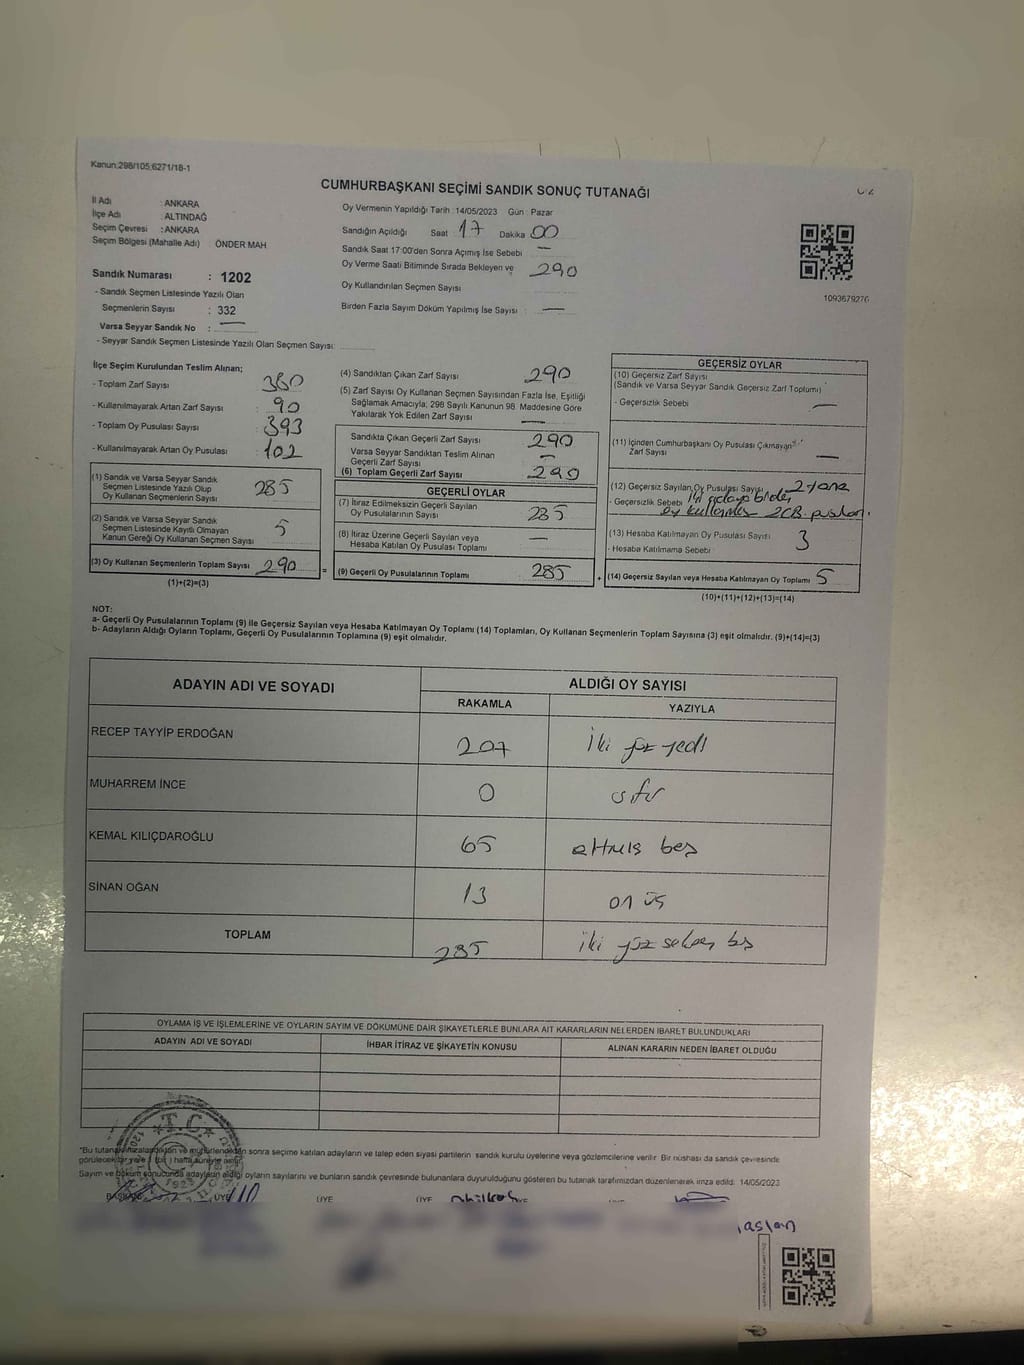 Kanun:298/105;6271/18-1
CUMHURBAŞKANI SEÇİMİ SANDIK SONUÇ TUTANAĞI
İl Adı : ANKARA
İlçe Adı : ALTINDAĞ
Seçim Çevresi : ANKARA
Seçim Bölgesi (Mahalle Adı) ÖNDER MAH
Sandık Numarası : 1202
- Sandık Seçmen Listesinde Yazılı Olan
Seçmenlerin Sayısı : 332
Varsa Seyyar Sandık No : —
- Seyyar Sandık Seçmen Listesinde Yazılı Olan Seçmen Sayısı:
Oy Vermenin Yapıldığı Tarih :14/05/2023 Gün : Pazar
Sandığın Açıldığı Saat 17 Dakika 00
Sandık Saat 17:00'den Sonra Açımış İse Sebebi —
Oy Verme Saati Bitiminde Sırada Bekleyen ve 290
Oy Kullandırılan Seçmen Sayısı
Birden Fazla Sayım Döküm Yapılmış İse Sayısı : —
1093679276
İlçe Seçim Kurulundan Teslim Alınan;
- Toplam Zarf Sayısı 380
- Kullanılmayarak Artan Zarf Sayısı : 90
- Toplam Oy Pusulası Sayısı : 393
- Kullanılmayarak Artan Oy Pusulası : 102
(1) Sandık ve Varsa Seyyar Sandık
Seçmen Listesinde Yazılı Olup
Oy Kullanan Seçmenlerin Sayısı 285
(2) Sandık ve Varsa Seyyar Sandık
Seçmen Listesinde Kayıtlı Olmayan
Kanun Gereği Oy Kullanan Seçmen Sayısı 5
(3) Oy Kullanan Seçmenlerin Toplam Sayısı 290
(1)+(2)=(3)
(4) Sandıktan Çıkan Zarf Sayısı 290
(5) Zarf Sayısı Oy Kullanan Seçmen Sayısından Fazla İse, Eşitliği
Sağlamak Amacıyla; 298 Sayılı Kanunun 98. Maddesine Göre
Yakılarak Yok Edilen Zarf Sayısı —
Sandıkta Çıkan Geçerli Zarf Sayısı 290
Varsa Seyyar Sandıktan Teslim Alınan
Geçerli Zarf Sayısı —
(6) Toplam Geçerli Zarf Sayısı 290
GEÇERLİ OYLAR
(7) İtiraz Edilmeksizin Geçerli Sayılan
Oy Pusulalarının Sayısı 285
(8) İtiraz Üzerine Geçerli Sayılan veya
Hesaba Katılan Oy Pusulası Toplamı —
= (9) Geçerli Oy Pusulalarının Toplamı 285
GEÇERSİZ OYLAR
(10) Geçersiz Zarf Sayısı
(Sandık ve Varsa Seyyar Sandık Geçersiz Zarf Toplumı)
- Geçersizlik Sebebi —
(11) İçinden Cumhurbaşkanı Oy Pusulası Çıkmayan
Zarf Sayısı —
(12) Geçersiz Sayılan Oy Pusulası Sayısı 2 tane
- Geçersizlik Sebebi iki adaya birden
oy kullanılmış 2CB pusları
(13) Hesaba Katılmayan Oy Pusulası Sayısı 3
- Hesaba Katılmama Sebebi
+ (14) Geçersiz Sayılan veya Hesaba Katılmayan Oy Toplamı 5
(10)+(11)+(12)+(13)=(14)
NOT:
a- Geçerli Oy Pusulalarının Toplamı (9) ile Geçersiz Sayılan veya Hesaba Katılmayan Oy Toplamı (14) Toplamları, Oy Kullanan Seçmenlerin Toplam Sayısına (3) eşit olmalıdır. (9)+(14)=(3)
b- Adayların Aldığı Oyların Toplamı, Geçerli Oy Pusulalarının Toplamına (9) eşit olmalıdır.
ADAYIN ADI VE SOYADI ALDIĞI OY SAYISI
RAKAMLA YAZIYLA
RECEP TAYYİP ERDOĞAN 207 iki yüz yedi
MUHARREM İNCE 0 sıfır
KEMAL KILIÇDAROĞLU 65 altmış beş
SİNAN OĞAN 13 on üç
TOPLAM 285 iki yüz seksen beş
OYLAMA İŞ VE İŞLEMLERİNE VE OYLARIN SAYIM VE DÖKÜMÜNE DAİR ŞİKAYETLERLE BUNLARA AİT KARARLARIN NELERDEN İBARET BULUNDUKLARI
ADAYIN ADI VE SOYADI İHBAR İTİRAZ VE ŞİKAYETİN KONUSU ALINAN KARARIN NEDEN İBARET OLDUĞU
T.C.
sonra seçime katılan adayların ve talep eden siyasi partilerin sandık kurulu üyelerine veya gözlemcilerine verilir. Bir nüshası da sandık çevresinde
Sayım ve döküm sonucunda adayların aldığı oyların sayılarını ve bunların sandık çevresinde bulunanlara duyurulduğunu gösteren bu tutanak tarafımızdan düzenlenerek imza edildi. 14/05/2023
BAŞKAN ÜYE ÜYE ÜYE
aslan